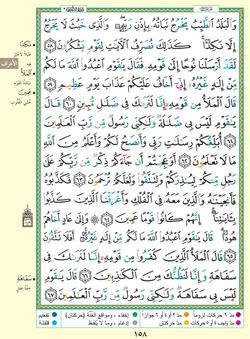 وَٱلْبَلَدُ ٱلطَّيِّبُ يَخْرُجُ نَبَاتُهُۥ بِإِذْنِ رَبِّهِۦ ۖ وَٱلَّذِى خَبُثَ لَا يَخْرُجُ
إِلَّا نَكِدًا ۚ كَذَٰلِكَ نُصَرِّفُ ٱلْءَايَٰتِ لِقَوْمٍ يَشْكُرُونَ ٥٨
لَقَدْ أَرْسَلْنَا نُوحًا إِلَىٰ قَوْمِهِۦ فَقَالَ يَٰقَوْمِ ٱعْبُدُوا۟ ٱللَّهَ مَا لَكُم
مِّنْ إِلَٰهٍ غَيْرُهُۥٓ إِنِّىٓ أَخَافُ عَلَيْكُمْ عَذَابَ يَوْمٍ عَظِيمٍ ٥٩
قَالَ ٱلْمَلَأُ مِن قَوْمِهِۦٓ إِنَّا لَنَرَىٰكَ فِى ضَلَٰلٍ مُّبِينٍ ٦٠ قَالَ
يَٰقَوْمِ لَيْسَ بِى ضَلَٰلَةٌ وَلَٰكِنِّى رَسُولٌ مِّن رَّبِّ ٱلْعَٰلَمِينَ ٦١
أُبَلِّغُكُمْ رِسَٰلَٰتِ رَبِّى وَأَنصَحُ لَكُمْ وَأَعْلَمُ مِنَ ٱللَّهِ
مَا لَا تَعْلَمُونَ ٦٢ أَوَعَجِبْتُمْ أَن جَآءَكُمْ ذِكْرٌ مِّن رَّبِّكُمْ عَلَىٰ
رَجُلٍ مِّنكُمْ لِيُنذِرَكُمْ وَلِتَتَّقُوا۟ وَلَعَلَّكُمْ تُرْحَمُونَ ٦٣
فَكَذَّبُوهُ فَأَنجَيْنَٰهُ وَٱلَّذِينَ مَعَهُۥ فِى ٱلْفُلْكِ وَأَغْرَقْنَا ٱلَّذِينَ كَذَّبُوا۟
بِـَٔايَٰتِنَآ ۚ إِنَّهُمْ كَانُوا۟ قَوْمًا عَمِينَ ٦٤ ۞ وَإِلَىٰ عَادٍ أَخَاهُمْ
هُودًا ۗ قَالَ يَٰقَوْمِ ٱعْبُدُوا۟ ٱللَّهَ مَا لَكُم مِّنْ إِلَٰهٍ غَيْرُهُۥٓ ۚ أَفَلَا تَتَّقُونَ ٦٥
قَالَ ٱلْمَلَأُ ٱلَّذِينَ كَفَرُوا۟ مِن قَوْمِهِۦٓ إِنَّا لَنَرَىٰكَ فِى
سَفَاهَةٍ وَإِنَّا لَنَظُنُّكَ مِنَ ٱلْكَٰذِبِينَ ٦٦ قَالَ يَٰقَوْمِ
لَيْسَ بِى سَفَاهَةٌ وَلَٰكِنِّى رَسُولٌ مِّن رَّبِّ ٱلْعَٰلَمِينَ ٦٧
نَكِدًا
الأعراف
ٱلْمَلَأُ
عَمِينَ
سَفَاهَةٍ
١٥٨